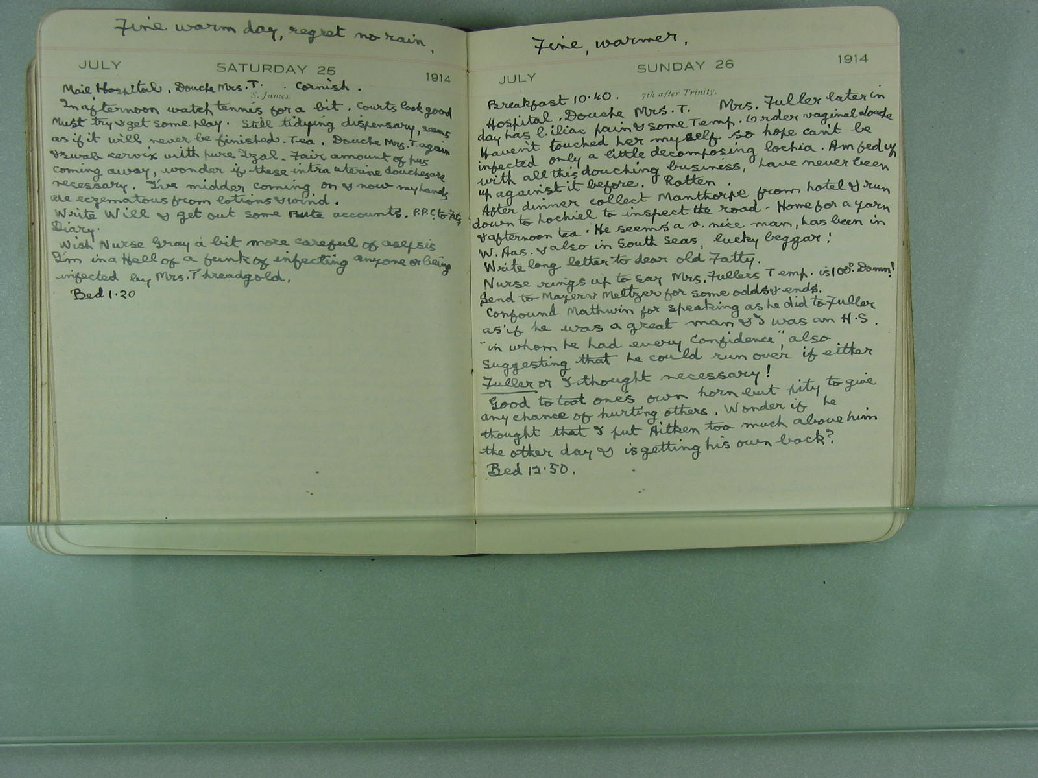 Fine warm day, regret no rain.
JULY SATURDAY 25 1914
S. James
Mail Hospital. Douche Mrs. T. Cornish.
In afternoon watch tennis for a bit. Courts look good
Must try & get some play. Still tidying dispensary, seems
as if it will never be finished. Tea. Douche Mrs. T again
& swab cervix with pure Izal. Fair amount of pus
coming away, wonder if these intra uterine douches are
necessary. I've midder coming on & now my hands
are eczematous from lotions & wind.
Write Will & get out some Bute accounts. P.P.C. to
Diary.
Wish Nurse Gray a bit more careful of asepsis
I'm in a Hell of a funk of infecting anyone or being
infected by Mrs. Threadgold.
Bed 1.20
Fine, warmer.
JULY SUNDAY 26 1914
7th after Trinity.
Breakfast 10.40.
Hospital. Douche Mrs. T. Mrs. Fuller later in
day has iliac pain & some Temp. Order vaginal douche
Haven't touched her myself so hope can't be
infected only a little decomposing lochia. Am fed up
with all this douching business, have never been
up against it before. Rotten.
After dinner collect Manthorpe from hotel & run
down to Lochiel to inspect the road. Home for a yarn
& afternoon tea. He seems a v. nice man, has been in
W. Aus. & also in South Seas, lucky beggar!
Write long letter to dear old Fatty.
Nurse rings up to say Mrs. Fullers Temp. is 100°. Damn!
Send to Mayer & Meltzer for some odds & ends.
Confound Mathwin for speaking as he did to Fuller
as if he was a great man & I was an H.S.
"in whom he had every confidence", also
suggesting that he could run over if either
Fuller or I thought necessary!
Good to toot ones own horn but pity to give
any chance of hurting others. Wonder if he
thought that I put Aitken too much above him
the other day & is getting his own back?
Bed 12.50.